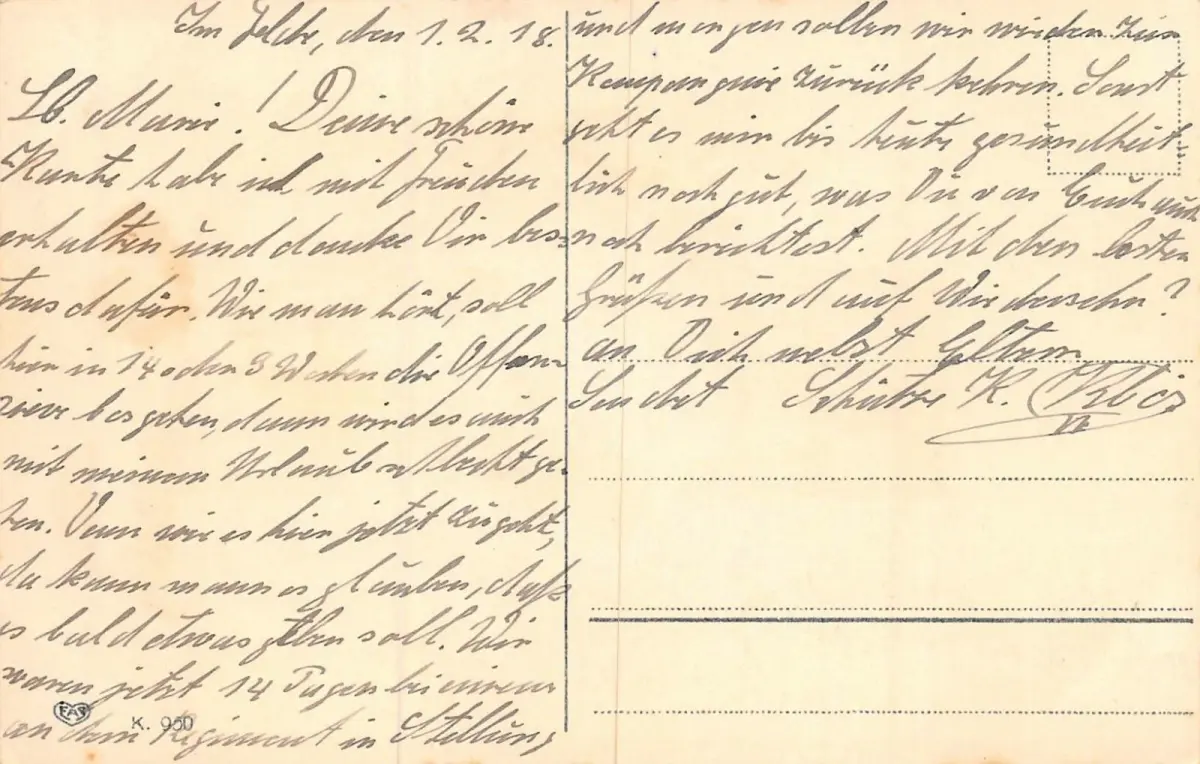 Im Felde, den 1.2.18.
Lb. Marie! Deine schöne
Karte habe ich mit Freuden
erhalten und danke Dir bes-
tens dafür. Wie man hört, soll
hier in 14 oder 3 Wochen die Offen-
zieve los gehen, dann wird es auch
mit meinem Urlaub schlecht ge-
hen. Denn wie es hier jetzt zugeht,
da kann man es glauben, daß
es bald etwas geben soll. Wir
waren jetzt 14 Tagen bei einem
an dem Regiment in Stellung
und morgen sollen wir wieder zur
Kompangnie zurück kehren. Sonst
geht es mir bis heute gesundheit-
lich noch gut, was Du von Euch auch
noch berichtest. Mit den besten
Grüßen und auf Wiedersehn?
an Dich nebst Eltern
Sendet Schütze K.
FAS
K. 950